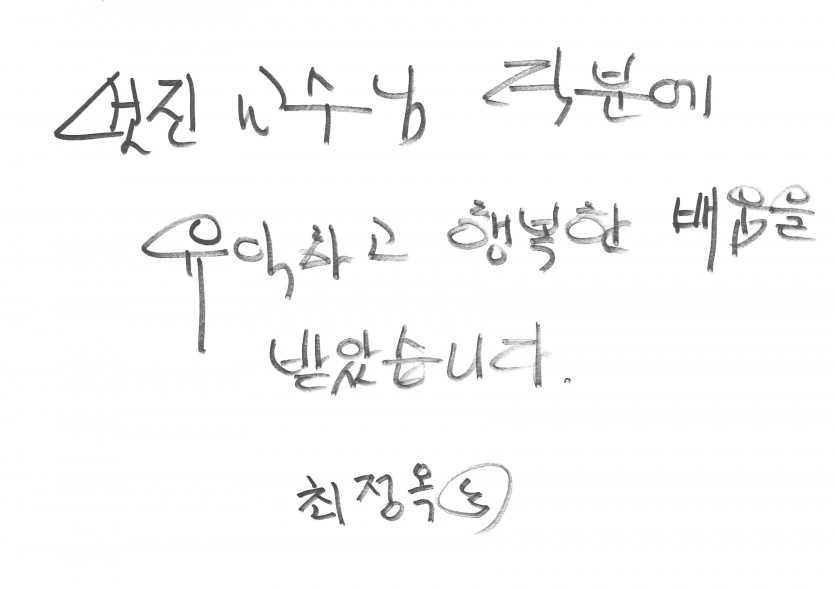 멋진 교수님 덕분에
유익하고 행복한 배움을
받았습니다.
최정옥